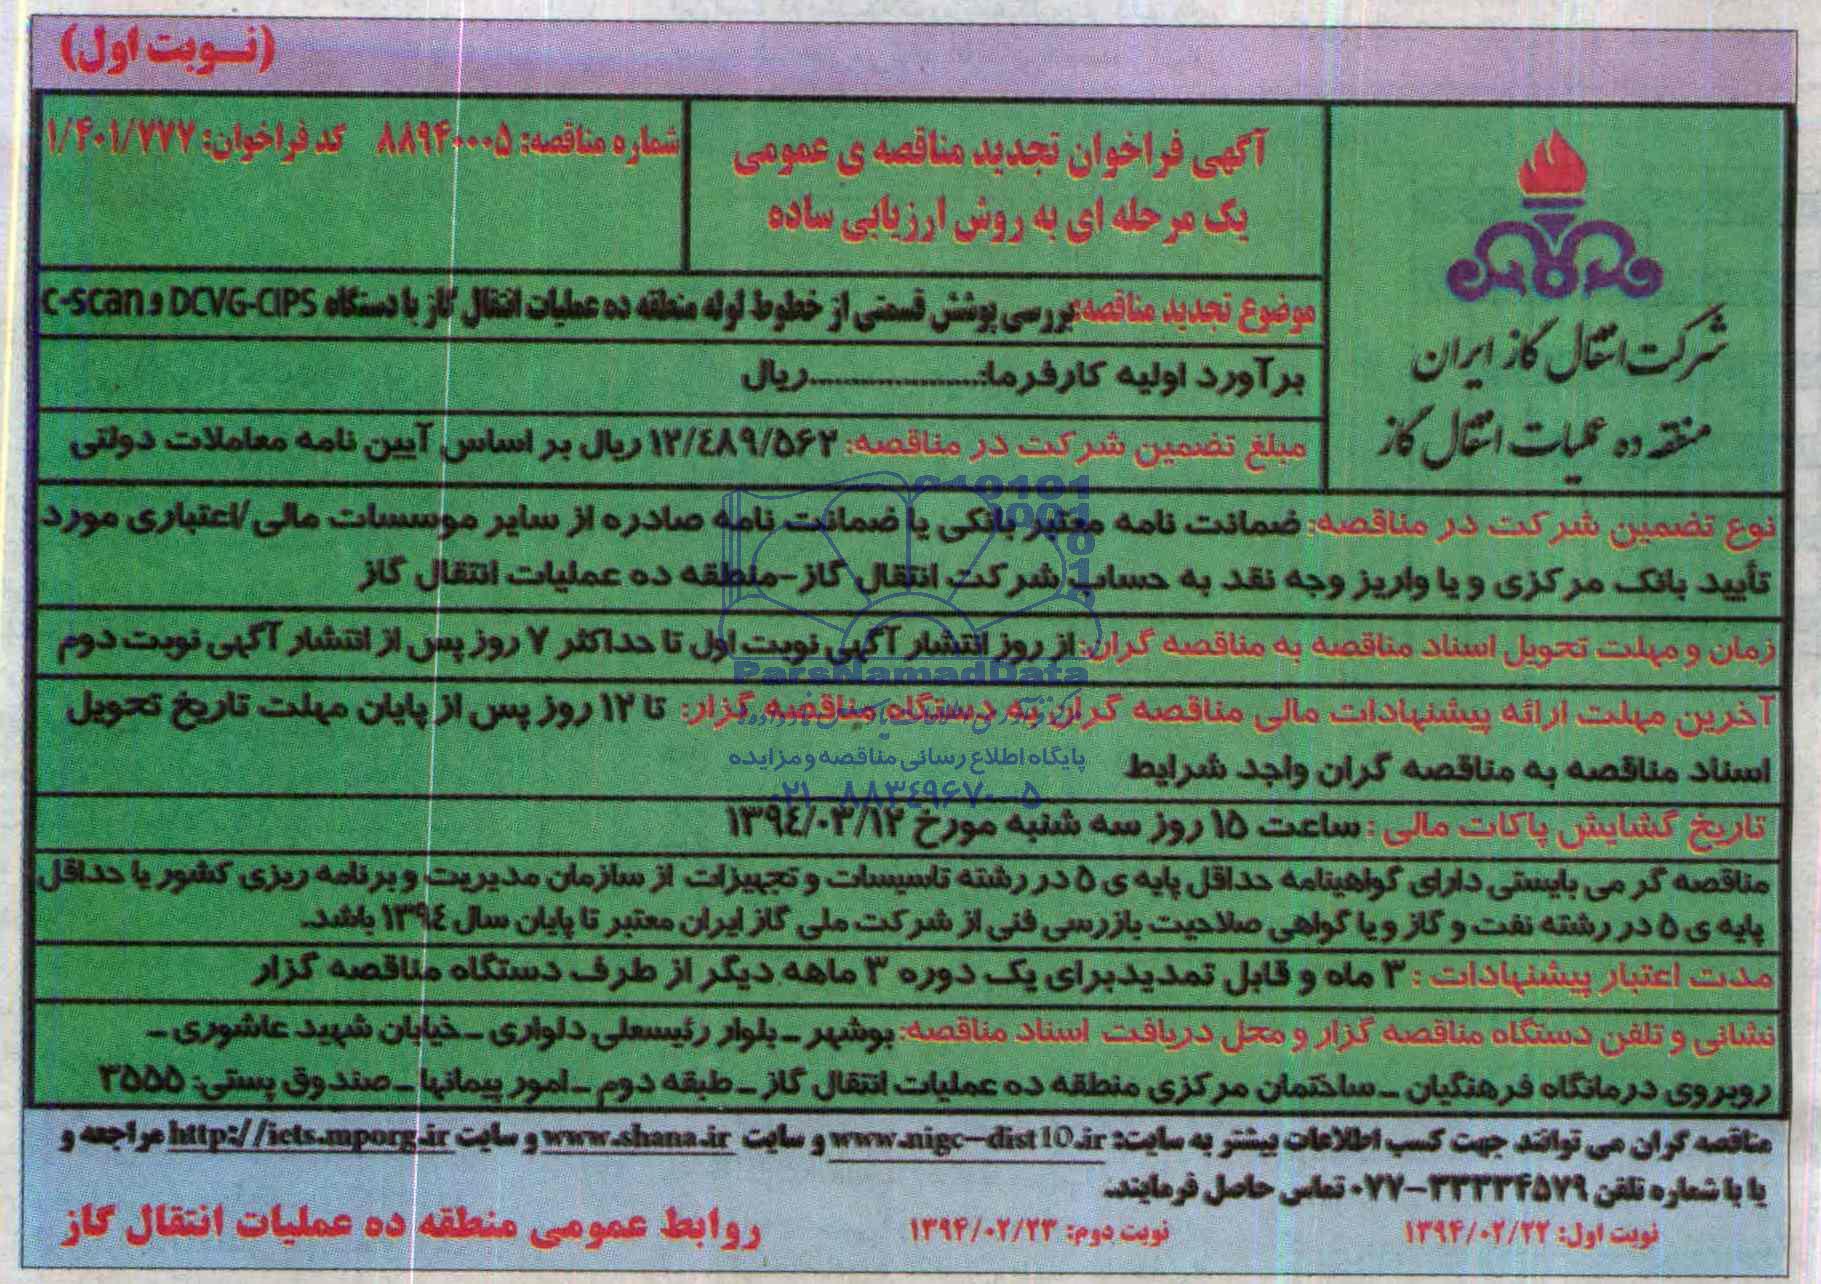 (نوبت اول)
شرکت انتقال گاز ایران
منطقه ده عملیات انتقال گاز
آگهی فراخوان تجدید مناقصه ی عمومی
یک مرحله ای به روش ارزیابی ساده
شماره مناقصه: ۸۸۹۴۰۰۰۵ کد فراخوان: ۱/۴۰۱/۷۷۷
موضوع تجدید مناقصه: بررسی پوشش قسمتی از خطوط لوله منطقه ده عملیات انتقال گاز با دستگاه DCVG-CIPS و C-scan
برآورد اولیه کارفرما:......................ریال
مبلغ تضمین شرکت در مناقصه: ۱۲/۴۸۹/۵۶۲ ریال بر اساس آیین نامه معاملات دولتی
نوع تضمین شرکت در مناقصه: ضمانت نامه معتبر بانکی یا ضمانت نامه صادره از سایر موسسات مالی/اعتباری مورد
تأیید بانک مرکزی و یا واریز وجه نقد به حساب شرکت انتقال گاز-منطقه ده عملیات انتقال گاز
زمان و مهلت تحویل اسناد مناقصه به مناقصه گران: از روز انتشار آگهی نوبت اول تا حداکثر ۷ روز پس از انتشار آگهی نوبت دوم
آخرین مهلت ارائه پیشنهادات مالی مناقصه گران به دستگاه مناقصه گزار: تا ۱۲ روز پس از پایان مهلت تاریخ تحویل
اسناد مناقصه به مناقصه گران واجد شرایط
تاریخ گشایش پاکات مالی: ساعت ۱۵ روز سه شنبه مورخ ۱۳۹۴/۰۳/۱۲
مناقصه گر می بایستی دارای گواهینامه حداقل پایه ی ۵ در رشته تاسیسات و تجهیزات از سازمان مدیریت و برنامه ریزی کشور یا حداقل
پایه ی ۵ در رشته نفت و گاز و یا گواهی صلاحیت بازرسی فنی از شرکت ملی گاز ایران معتبر تا پایان سال ۱۳۹۴ باشد.
مدت اعتبار پیشنهادات: ۳ ماه و قابل تمدید برای یک دوره ۳ ماهه دیگر از طرف دستگاه مناقصه گزار
نشانی و تلفن دستگاه مناقصه گزار و محل دریافت اسناد مناقصه: بوشهر ـ بلوار رئیسعلی دلواری ـ خیابان شهید عاشوری ـ
روبروی درمانگاه فرهنگیان ـ ساختمان مرکزی منطقه ده عملیات انتقال گاز ـ طبقه دوم ـ امور پیمانها ـ صندوق پستی: ۳۵۵۵
مناقصه گران می توانند جهت کسب اطلاعات بیشتر به سایت: www.nigc-dist10.ir و سایت www.shana.ir و سایت http://iets.mporg.ir مراجعه و
یا با شماره تلفن ۳۳۳۳۴۵۷۹-۰۷۷ تماس حاصل فرمایند.
نوبت اول: ۱۳۹۴/۰۲/۲۲ نوبت دوم: ۱۳۹۴/۰۲/۲۳
روابط عمومی منطقه ده عملیات انتقال گاز
ParsNamadData
پایگاه اطلاع رسانی مناقصه و مزایده
۰۲۱-۸۸۳۴۹۶۷۰-۵